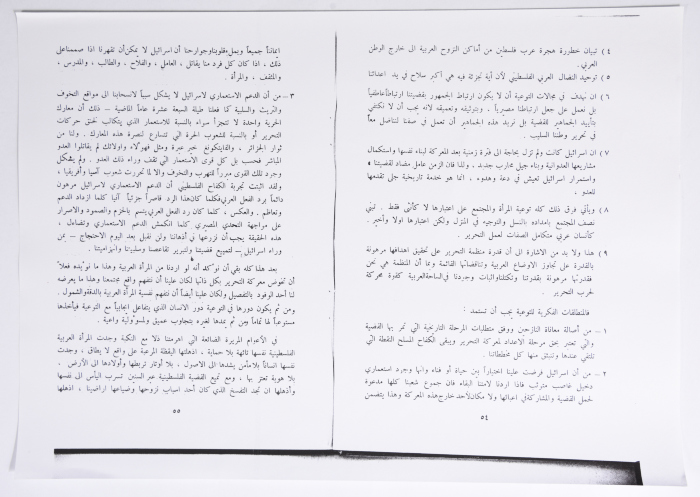 ٤ ) تبيان خطورة هجرة عرب فلسطين من أماكن النزوح العربية الى خارج الوطن
العربي .
٥ ) توحيد النضال العربي الفلسطيني لأن أية تجزئة فيه هي أكبر سلاح في يد أعدائنا
٦ ) ان نهدف في مجالات التوعية أن لا يكون ارتباط الجمهور بقضيتنا ارتباطاً عاطفياً
بل نعمل على جعل ارتباطنا مصيرياً ، وبتوثيقه وتعميقه لأنه يجب أن لا نكتفي
بتأييد الجماهير للقضية بل نريد هذه الجماهير أن تعمل في صفنا لتناضل معاً
في تحرير وطننا السليب .
٧ ) ان اسرائيل كانت ولم تزل بحاجة الى فترة زمنية بعد المعركة لبناء نفسها واستكمال
مشاريعها العدوانية وبناء جيل محارب جديد ، ولذا فان الزمن عامل مضاد لقضيتنا ،
واستمرار اسرائيل تعيش في دعة وهدوء ، انما هو خدمة تاريخية جلى نقدمها
للعدو .
٨ ) ويأتي فوق ذلك كله توعية المرأة والمجتمع على اعتبارها لا كأنثى فقط . تبني
نصف المجتمع بامداده بالنسل والتوجيه في المنزل ولكن اعتبارها اولا وأخيراً
كأنسان عربي متكامل الصفات لعمل التحرير .
٩ ) هذا ولا بد من الاشارة الى أن قدرة منظمة التحرير على تحقيق اهدافها مرهونة
بالقدرة على تجاوز الاوضاع العربية وتناقضاتها القائمة وبما أن المنظمة هي نحن
فقدرتها مرهونة بقدرتنا وتكتلنا واثبات وجودنا في الساحة العربية كقوة محركة
لحرب التحرير .
فالمنطلقات الفكرية للتوعية يجب أن تستمد :
١ – من أصالة معاناة النازحين ووفق متطلبات المرحلة التاريخية التي تمر بها القضية
والتي تعتبر بحق مرحلة الاعداد لمعركة التحرير ويبقى الكفاح المسلح النقطة التي
نلتقي عندها وتنبثق منها كل مخططاتنا .
٢ – من أن اسرائيل فرضت علينا اختباراً بين حياة أو فناء وانها وجود استعماري
دخيل غاصب مترتب فاذا اردنا لامتنا البقاء فان جموع شعبنا كلها مدعوة
لحمل القضية والمشاركة في اعبائها ولا مكان لأحد خارج هذه المعركة وهذا يتضمن
٥٤
ايماننا جميعاً وبملء قلوبنا وجوارحنا أن اسرائيل لا يمكن أن تقهرنا اذا صممنا على
ذلك ، اذا كان كل فرد منا يقاتل ، العامل ، والفلاح . والطالب ، والمدرس ،
والمثقف ، والمرأة .
٣ – من أن الدعم الاستعماري لاسرائيل لا يشكل سبباً لانسحابنا الى مواقع التخوف
والتريث والسلبية كما فعلنا طيلة السبعة عشرة عاماً الماضية – ذلك أن معارك
الحرية واحدة لا تتجزأ سواء بالنسبة للاستعمار الذي يتكالب لخنق حركات
التحرير أو بالنسبة للشعوب الحرة التي تتسارع لنصرة هذه المعارك . ولنا من
ثوار الجزائر ، والفايتكونغ خير عبرة ومثل فهؤلاء واولائك لم يقاتلوا العدو
المباشر فحسب بل كل قوى الاستعمار التي تقف وراء ذلك العدو . ولم يشكل
وجود تلك القوى مبرراً للتهرب والتخوف والا لما تحررت شعوب آسيا وأفريقيا ،
ولقد اثبتت تجربة الكفاح الفلسطيني أن الدعم الاستعماري لاسرائيل مرهون
دائماً برد الفعل العربي فكلما كان هذا الرد قاصراً جزئياً آنيا كلما ازداد الدعم
وتعاظم . والعكس ، كلما كان رد الفعل العربي يتسم بالحزم والصمود والاصرار
على مواجهة التحدي المصيري كلما انكمش الدعم الاستعماري وتضاءل ،
هذه الحقيقة يجب أن نزرعها في أذهاننا ولن نقبل بعد اليوم الاحتجاج – بمن
وراء اسرائيل – لتمييع قضيتنا ولتبرير تقاعسنا وسلبياتنا وانهزاميتنا .
بعد هذا كله بقي أن نؤكد أنه لو اردنا من المرأة العربية وهذا ما نريده فعلاً
أن تخوض معركة التحرير بكل ذاتها لكان علينا أن نتفهم واقع مجتمعها وهذا ما يعرضه
لنا أحد الوفود بالتفصيل ولكان علينا أيضاً أن نتفهم نفسية المرأة العربية بالدقة والشمول .
ومن ثم يكون دورها في التوعية دور الانسان الذي يتفاعل ايجابياً مع التوعية فيأخذها
مستوعباً لها تماماً ومن ثم يمدها لغيره بتجاوب عميق ولمسؤولية واعية .
في الأعوام المريرة الضائعة التي اعمرتنا ذلا مع النكبة وجدت المرأة العربية
الفلسطينية نفسها تائهة بلا حماية ، اذهلتها اليقظة المرعبة على واقع لا يطاق ، وجدت
نفسها انساناً بلا مأمن يشدها الى الاصول . بلا أوتار تربطها وأولادها الى الأرض .
بلا هوية تعتز بها ، ومع تمييع القضية الفلسطينية عبر السنين تسرب اليأس الى نفسها
وأذهلها ان تجد التفسخ الذي كان أحد اسباب نزوحها وضياعها اراضينا ، اذهلها
٥٥